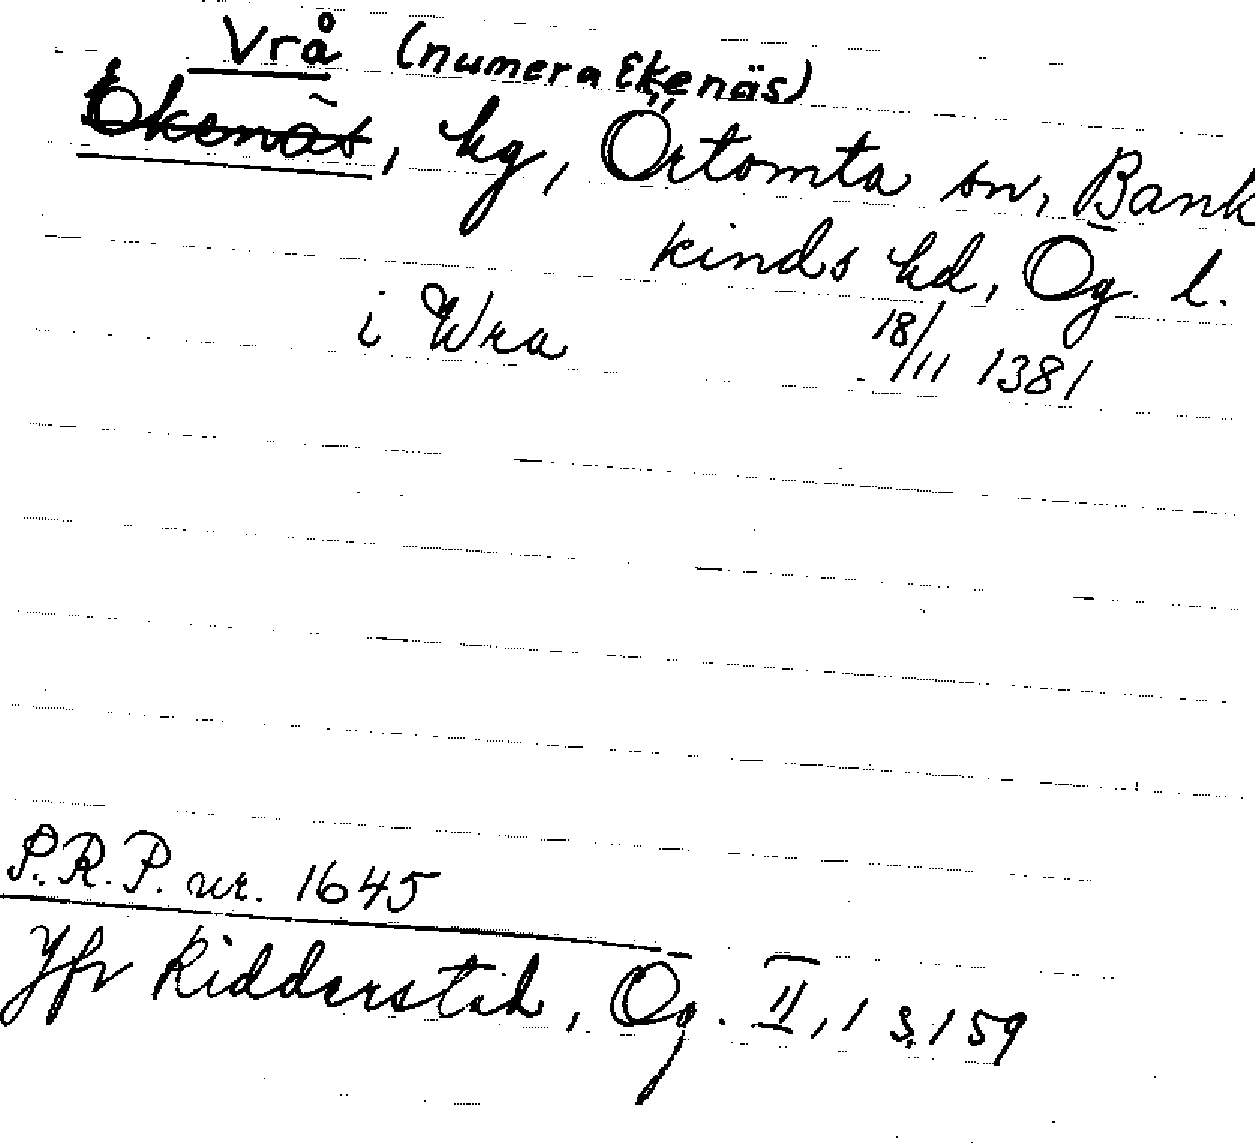 Vrå (numera Ekenäs)
Ekenäs, hg, Örtomta sn, Bank
kinds hd, Ög. l.
i Wra 18/11 1381
S.R.P. nr. 1645
Jfr Ridderstad, Ög. II, 1 s. 159